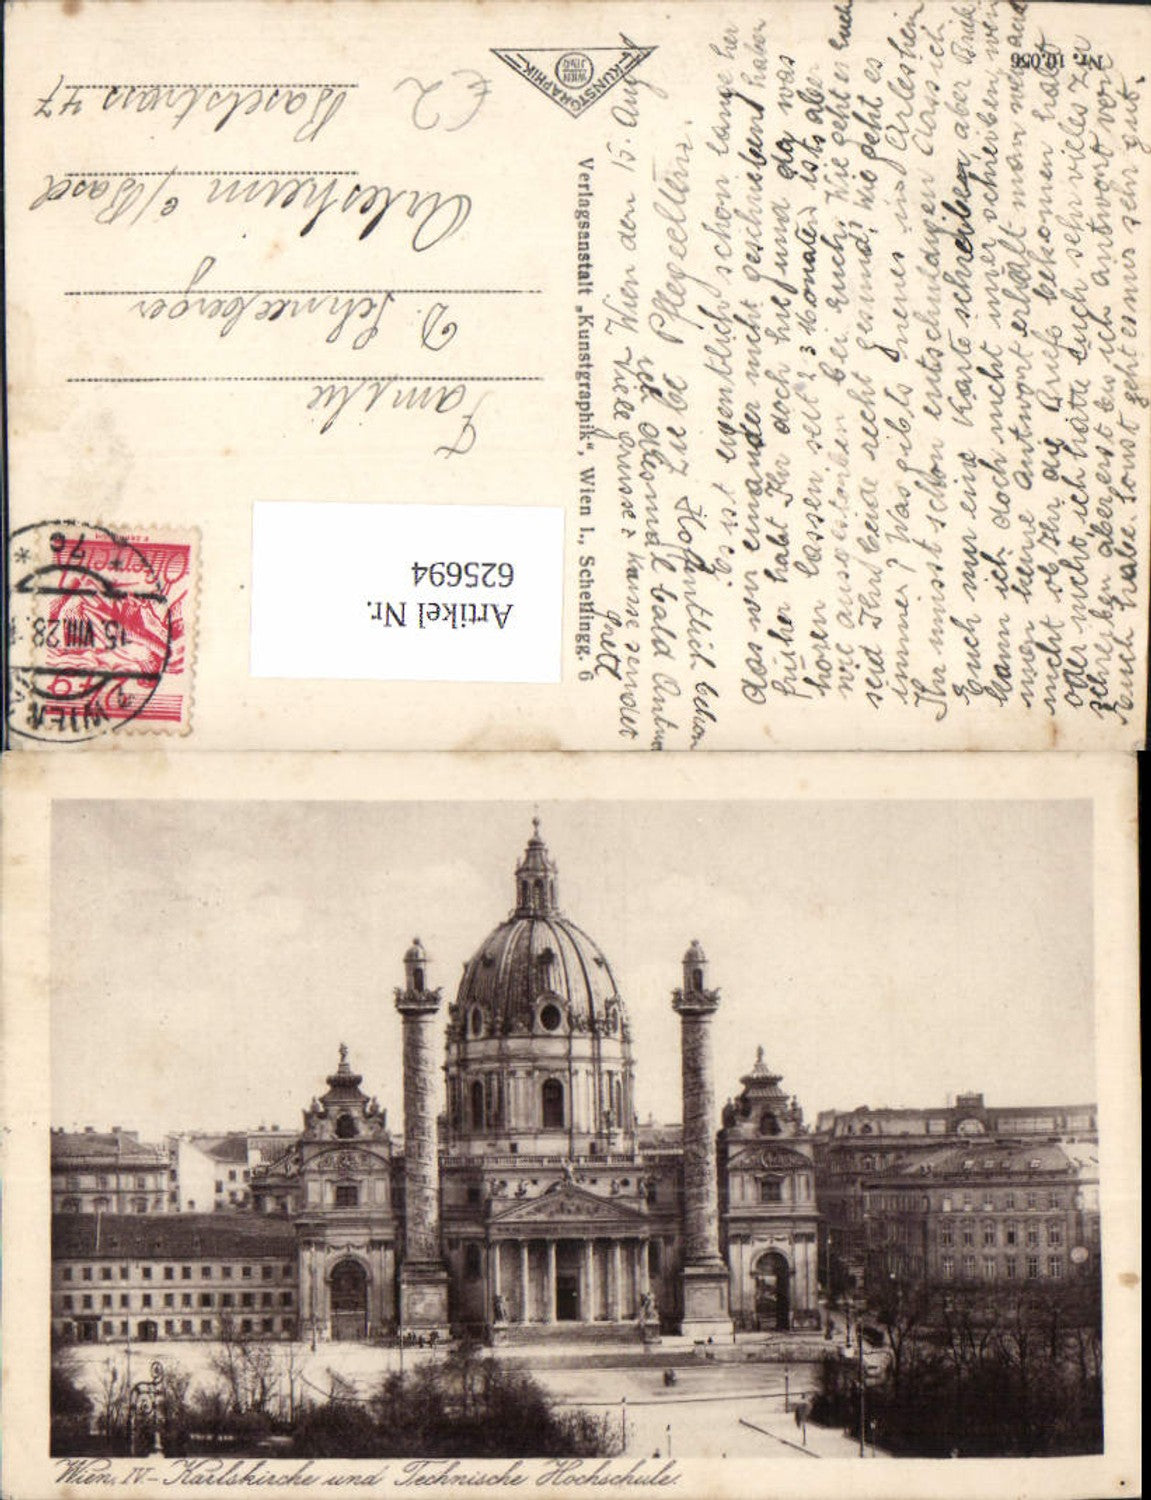 Nr. 10.056
KUNSTGRAPHIK
WIEN
Verlagsanstalt „Kunstgraphik“, Wien I., Schellingg. 6
Familie
D. Schneeberger
Arlesheim b/Basel
Baselstrass 47
Österreich
WIEN
15.VIII.28
* 7c *
Artikel Nr.
625694
Wien den 15. Aug
Liebe Pflegeeltern.
es ist eigentlich schon lange her
das wir einander nicht geschrieben haben
früher habt Ihr doch hie und da was
hören lassen seit 2 3 Monaten ists aber
wie ausgestorben bei Euch. Wie geht es Euch
seid Ihr beide recht gesund, wie geht es
immer? Was gibts neues in Arlesheim
Ihr müsst schon entschuldigen dass ich
Euch nur eine Karte schreibe aber Brief
kann ich doch nicht schreiben wen
keine Antwort erhält man weis auch
nicht ob Ihr die Briefe bekomen habt
oder nicht ich hätte Euch sehr vieles zu
schreiben aber erst bis ich Antwort von
Euch habe. Sonst geht es mir sehr gut.
Hofentlich bekom
ich diesmal bald Antwort
Viele Grüsse
Wien, IV - Karlskirche und Technische Hochschule.